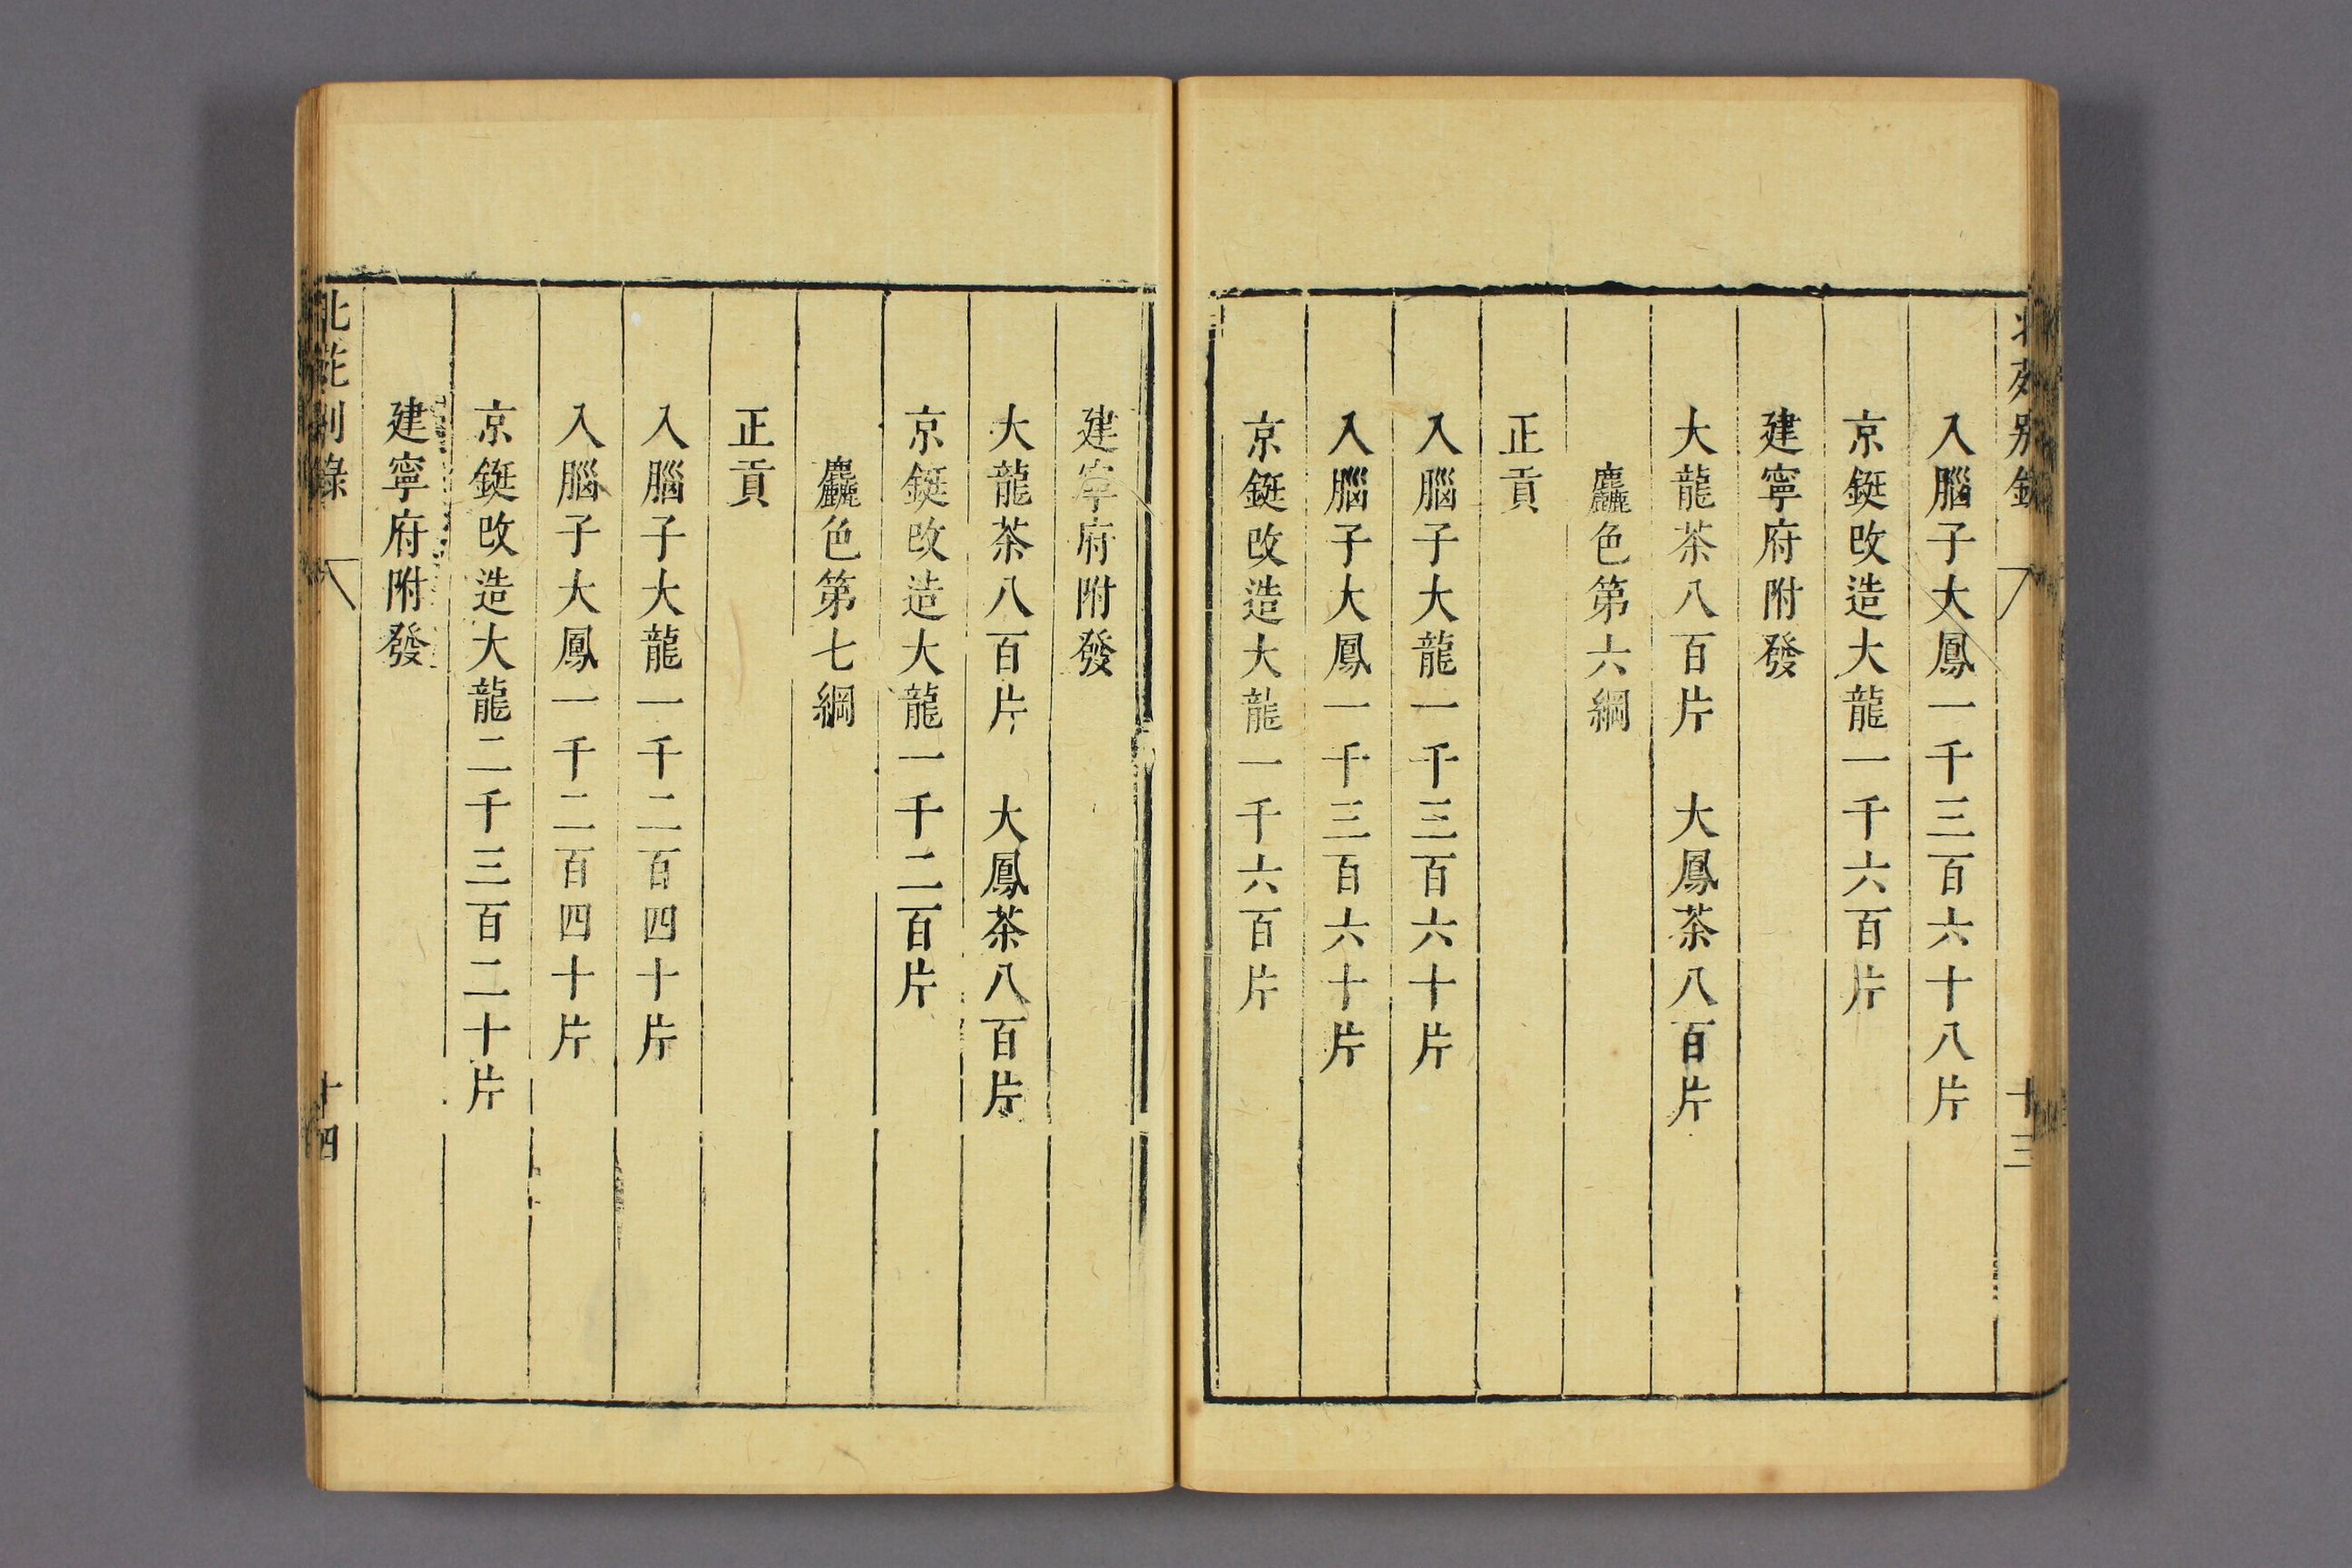 北苑別錄 十三
入腦子大鳳一千三百六十八片
京鋌改造大龍一千六百片
建寧府附發
大龍茶八百片 大鳳茶八百片
麤色第六綱
正貢
入腦子大龍一千三百六十片
入腦子大鳳一千三百六十片
京鋌改造大龍一千六百片
建寧府附發
大龍茶八百片 大鳳茶八百片
京鋌改造大龍一千二百片
麤色第七綱
正貢
入腦子大龍一千二百四十片
入腦子大鳳一千二百四十片
京鋌改造大龍二千三百二十片
建寧府附發
北苑別錄 十四